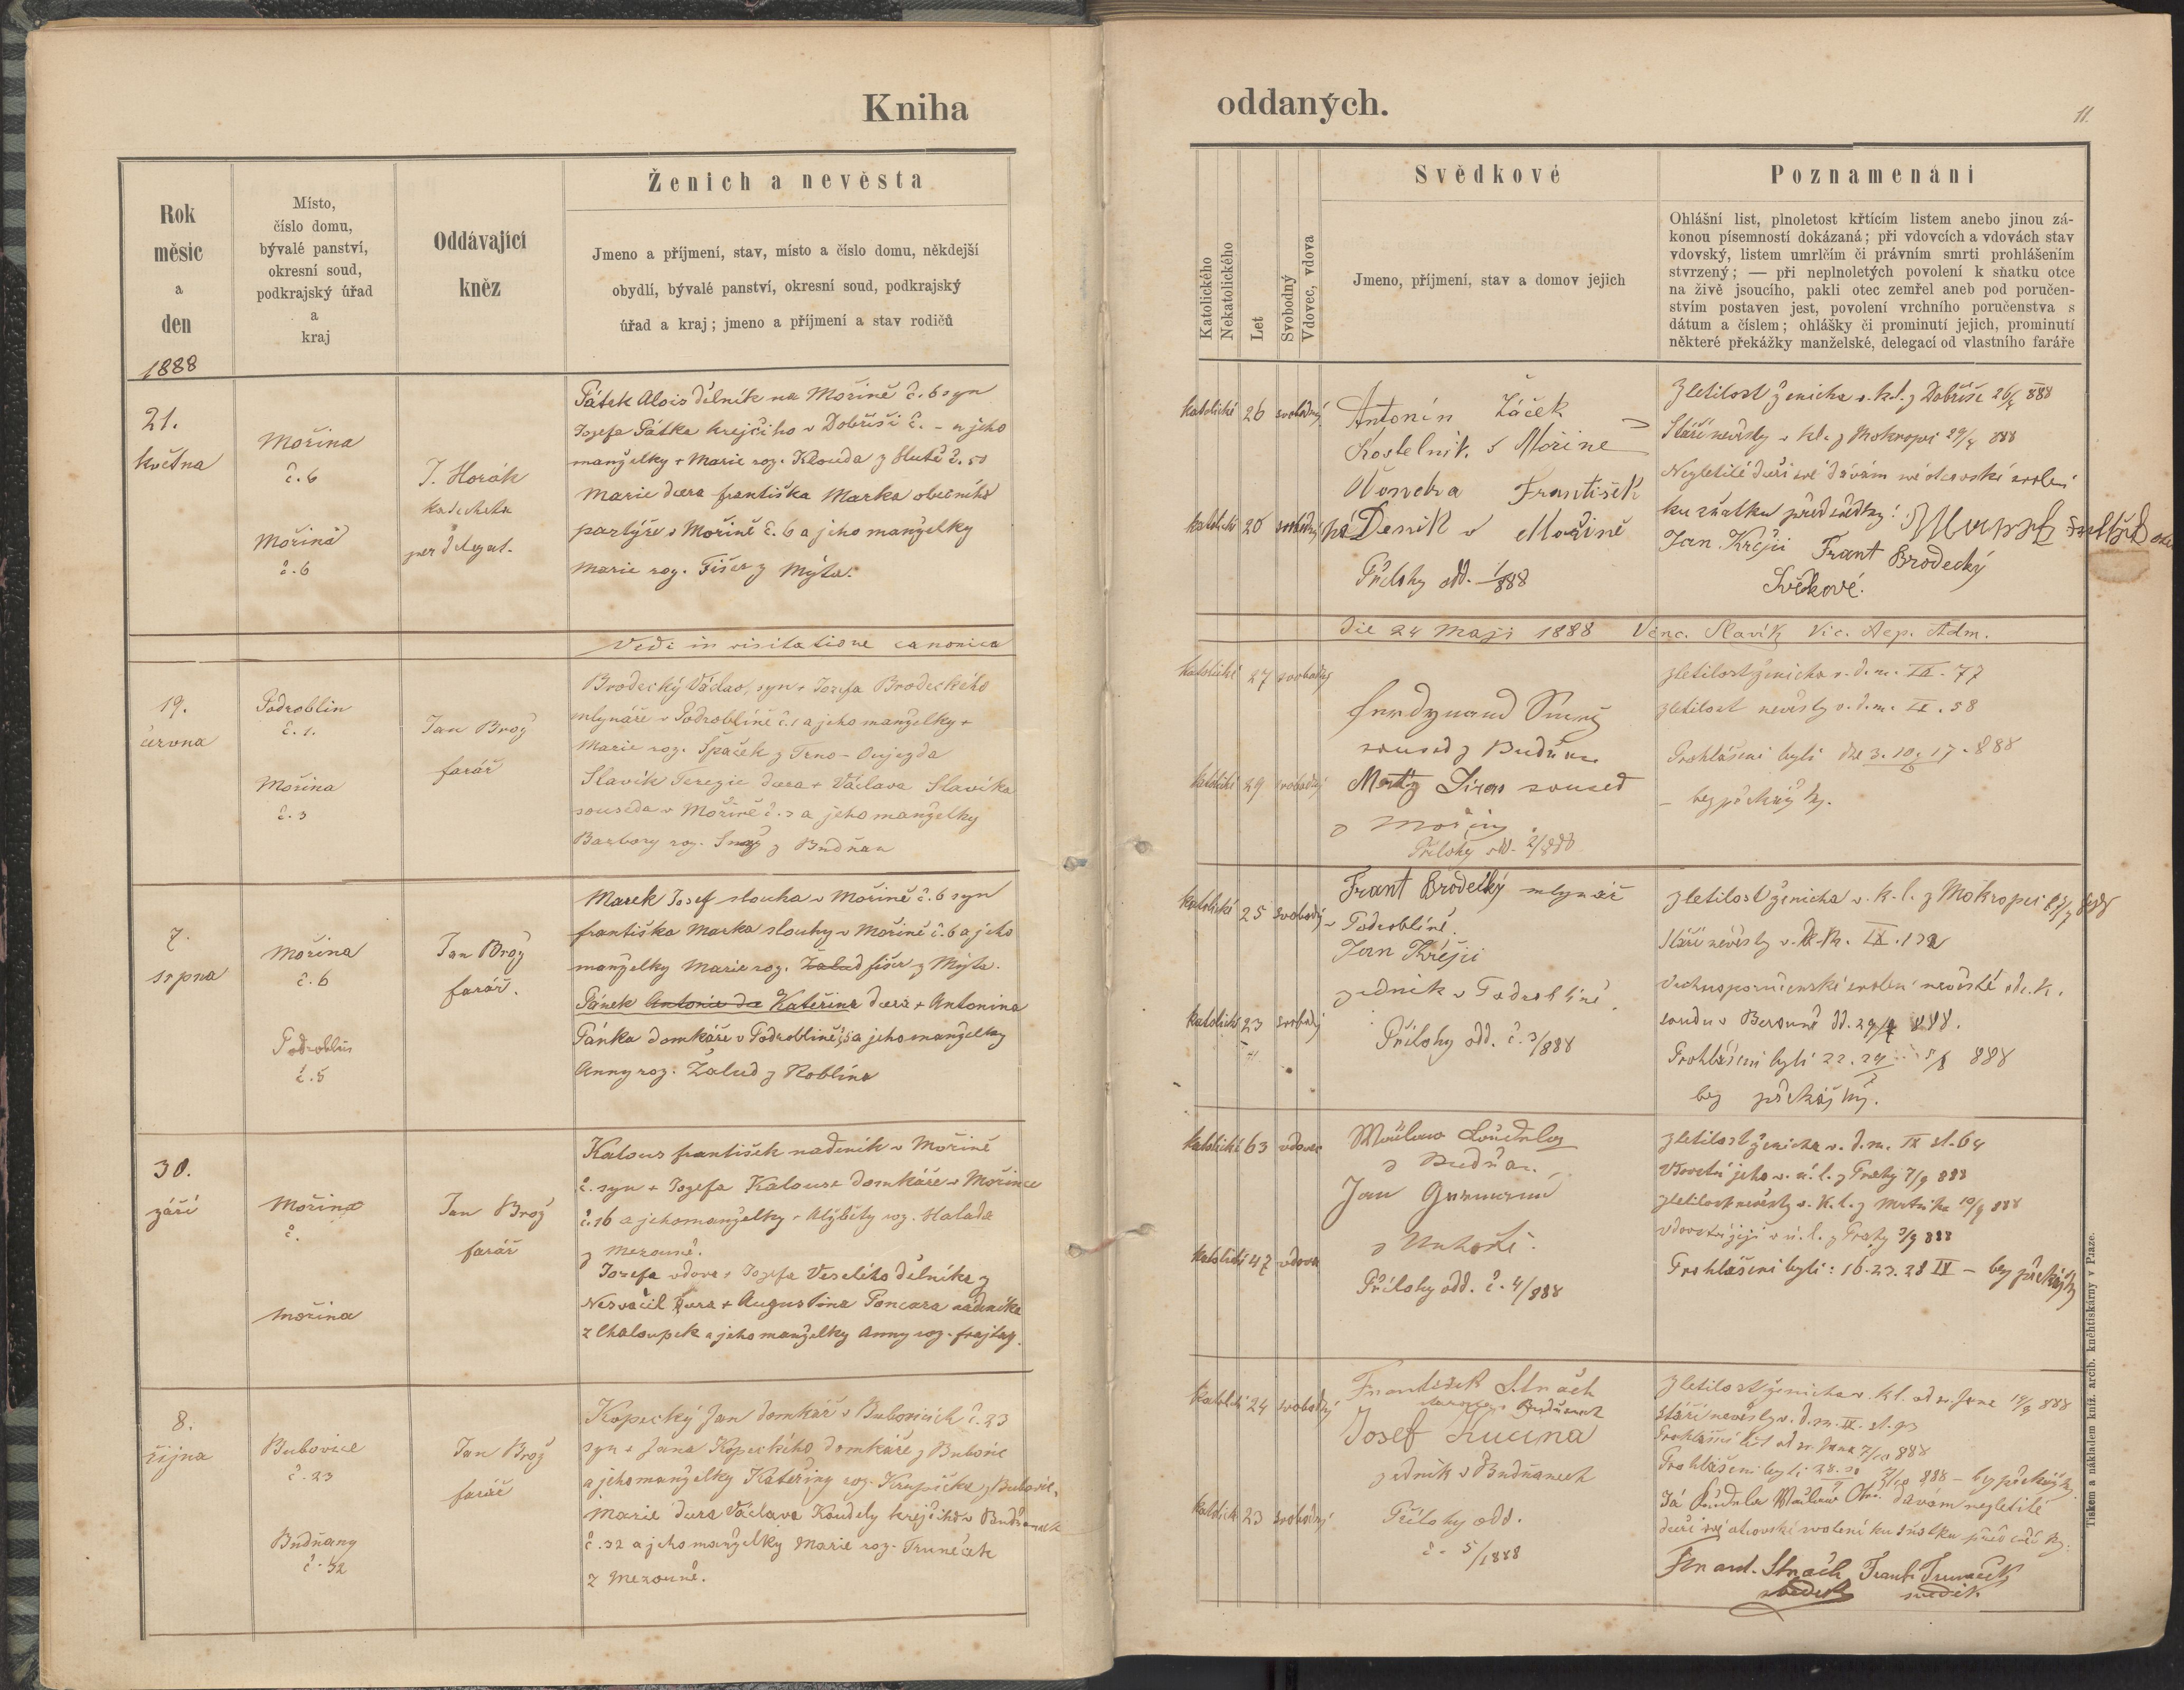 Kniha
oddaných.
11.
Rok
měsíc
a
den
1888
Místo,
číslo domu,
bývalé panství,
okresní soud,
podkrajský úřad
a
kraj
Oddávající
kněz
Ženich a nevěsta
Jmeno a příjmení, stav, místo a číslo domu, někdejší
obydlí, bývalé panství, okresní soud, podkrajský
úřad a kraj; jmeno a příjmení a stav rodičů
Katolického
Nekatolického
Let
Svobodný
Vdovec, vdova
Svědkové
Jmeno, příjmení, stav a domov jejich
Poznamenání
Ohlášní list, plnoletost křtícím listem anebo jinou zá-
konou písemností dokázaná; při vdovcích a vdovách stav
vdovský, listem umrlčím či právním smrti prohlášením
stvrzený; — při neplnoletých povolení k sňatku otce
na živě jsoucího, pakli otec zemřel aneb pod poručen-
stvím postaven jest, povolení vrchního poručenstva s
dátum a číslem; ohlášky či prominutí jejich, prominutí
některé překážky manželské, delegací od vlastního faráře
21.
května
Mořina
č. 6
Mořina
č. 6
J. Horák
katecheta
per delegat.
Pátek Alois dělník na Mořině č. 6 syn
Josefa Pátka krejčího v Dobříši č. - a jeho
manželky + Marie roz. Klouda z Hutě č. 50
Marie dcera františka Marka obecního
pastýře v Mořině č. 6 a jeho manželky
Marie roz. Fišer z Mýta.
katolické 26 svobodný
katolické 20 svobodný
Antonín Žáček
Kostelník, z Mořine
František
Deník v Mořině
Přílohy odd. 1/888
Zletilost ženicha v. k. l. z Dobříše 26/4 888
Stáří nevěsty v kl. z Mokropsi 29/4 888
Nezletilé dceři své dávám své otcovské svolení
ku sňatku před svědky:
Jan Krejčí Frant Brodecký
Svědkové.
Vidi in visitatione canonica
die 24 Maji 1888 Venc. Slavík Vic. Aep. Adm.
19.
června
Podroblin
č. 1.
Mořina
č. 3
Jan Brož
farář
Brodecký Václav, syn + Josefa Brodeckého
mlynáře v Podroblíně č. 1 a jeho manželky +
Marie roz. Špaček z Trno-Oujezda
Slavík Terezie dcera + Václava Slavíka
souseda v Mořině č. 3 a jeho manželky
Barbory roz. z Budňan
katolické 27 svobodný
katolické 29 svobodný
soused z Budňan
soused
z Mořiny
Přílohy odd. 2/888
zletilost ženicha v. d. m. IX. 77
zletilost nevěsty v. d. m. IX. 58
Prohlášeni byli dne 3. 10. 17. 888
- bez překážky.
7.
srpna
Mořina
č. 6
Podroblín
č. 5
Jan Brož
farář.
Marek Josef slouha v Mořině č. 6 syn
františka Marka slouhy v Mořině č. 6 a jeho
manželky Marie roz. Žalud fišer z Mýta.
Pánek Antonie dce Kateřina dcera + Antonína
Pánka domkáře v Podroblině č. 5 a jeho manželky
Anny roz. Žalud z Roblína
katolické 25 svobodný
katolické 23 svobodný
Frant Brodecký mlynář
v Podroblíně.
Jan Krejčí
zedník v Podroblíně.
Přílohy odd. č. 3/888
zletilost ženicha v. k. l. z Mokropsi
Stáří nevěsty v. IX. 132
Vrchnoporučenské svolení nevěstě
soudu v Berouně dd. 888.
Prohlášeni byli 22. 29 5/8 888
bez překážky.
30.
září
Mořina
č.
Mořina
Jan Brož
farář
Kalous františek nadeník v Mořině
č. syn + Josefa Kalouse domkáře v Mořince
č. 16 a jeho manželky + Alžběty roz. Halada
z Mezouně.
Josefa vdova + Josefa Veselého dělníka z
Nesvačil dcera + Augustina Poncara nádeníka
z Chaloupek a jeho manželky Anny roz. frajtag.
katolické 63 vdovec
katolické 47 vdova
z Budňan
Jan
Přílohy odd. č. 4/888
zletilost ženicha v. d. m. IX st. 64
Vdovství jeho v. ú. l. z Prahy 7/9 888
zletilost nevěsty v. k. l. z 10/9 888
vdovství její v ú. l. z Prahy 3/9 888
Prohlášeni byli: 16. 23. 28 IX - bez překážky
8.
října
Bubovice
č. 23
Budňany
č. 32
Jan Brož
farář
Kopecký Jan domkář v Bubovicích č. 23
syn + Jana Kopeckého domkáře z Bubovic
a jeho manželky Kateřiny roz. Krupička z Bubovic.
Marie dcera Václava Koudely krejčího v Budňanech
č. 32 a jeho manželky Marie roz. Truneček
z Mezouně.
katolické 24 svobodný
katolické 23 svobodný
František Strach
Josef Kucina
zedník v Budňanech
Přílohy odd.
č. 5/1888
Zletilost ženicha v. kl. od sv. Jana 19/9 888
stáří nevěsty v. d. m. IX. st. 93
Prohlášcí list od sv. Jana 7/10 888
Prohlášeni byli 28. 30 7/10 888 - bez překážky.
Já Koudela dávám nezletilé
dceři své otcovské svolení ku sňatku před svědky:
Strach Frant. Truneček
svědek svědek
Tiskem a nákladem kníž. arcib. knihtiskárny v Praze.